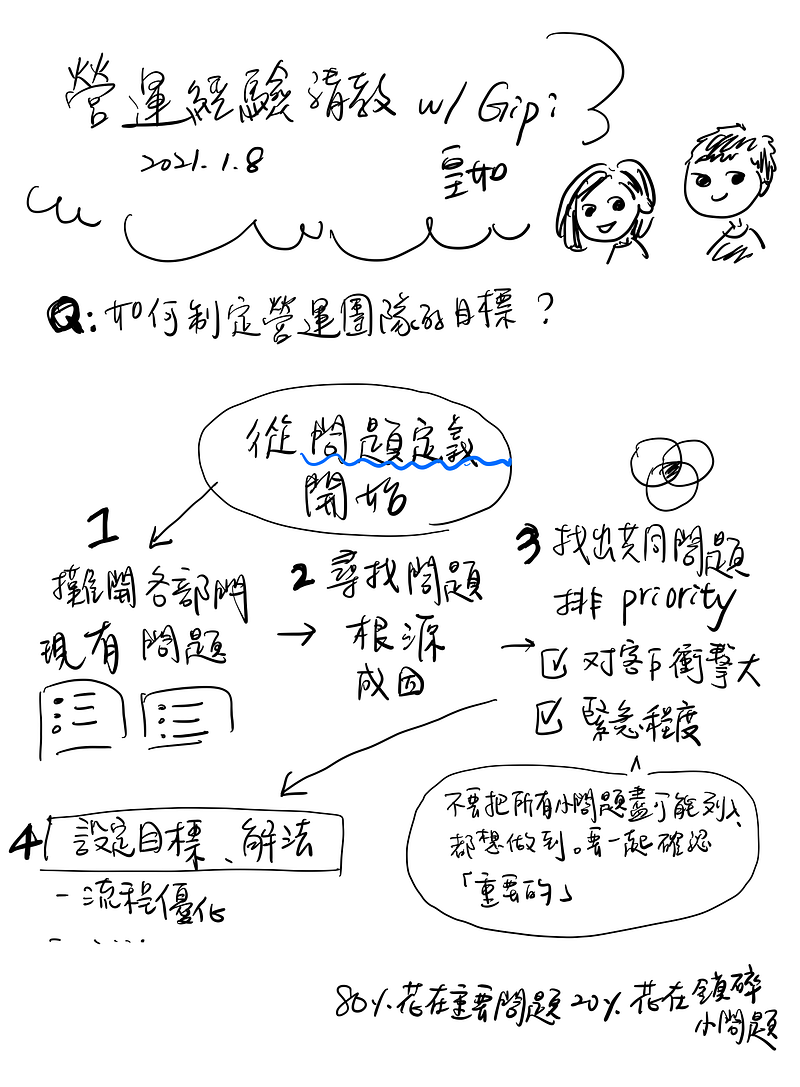 營運經驗請教 w/ Gipi
2021.1.8
皇如
Q: 如何制定營運團隊的目標？
從問題定義
開始
1
攤開各部門
現有問題
2 尋找問題
根源
成因
3 找出共同問題
排 priority
对客戶衝擊大
緊急程度
不要把所有小問題盡可能列入
都想做到。要一起確認
「重要的」
4 設定目標、解法
- 流程優化
80% 花在重要問題 20% 花在鎖碎
小問題